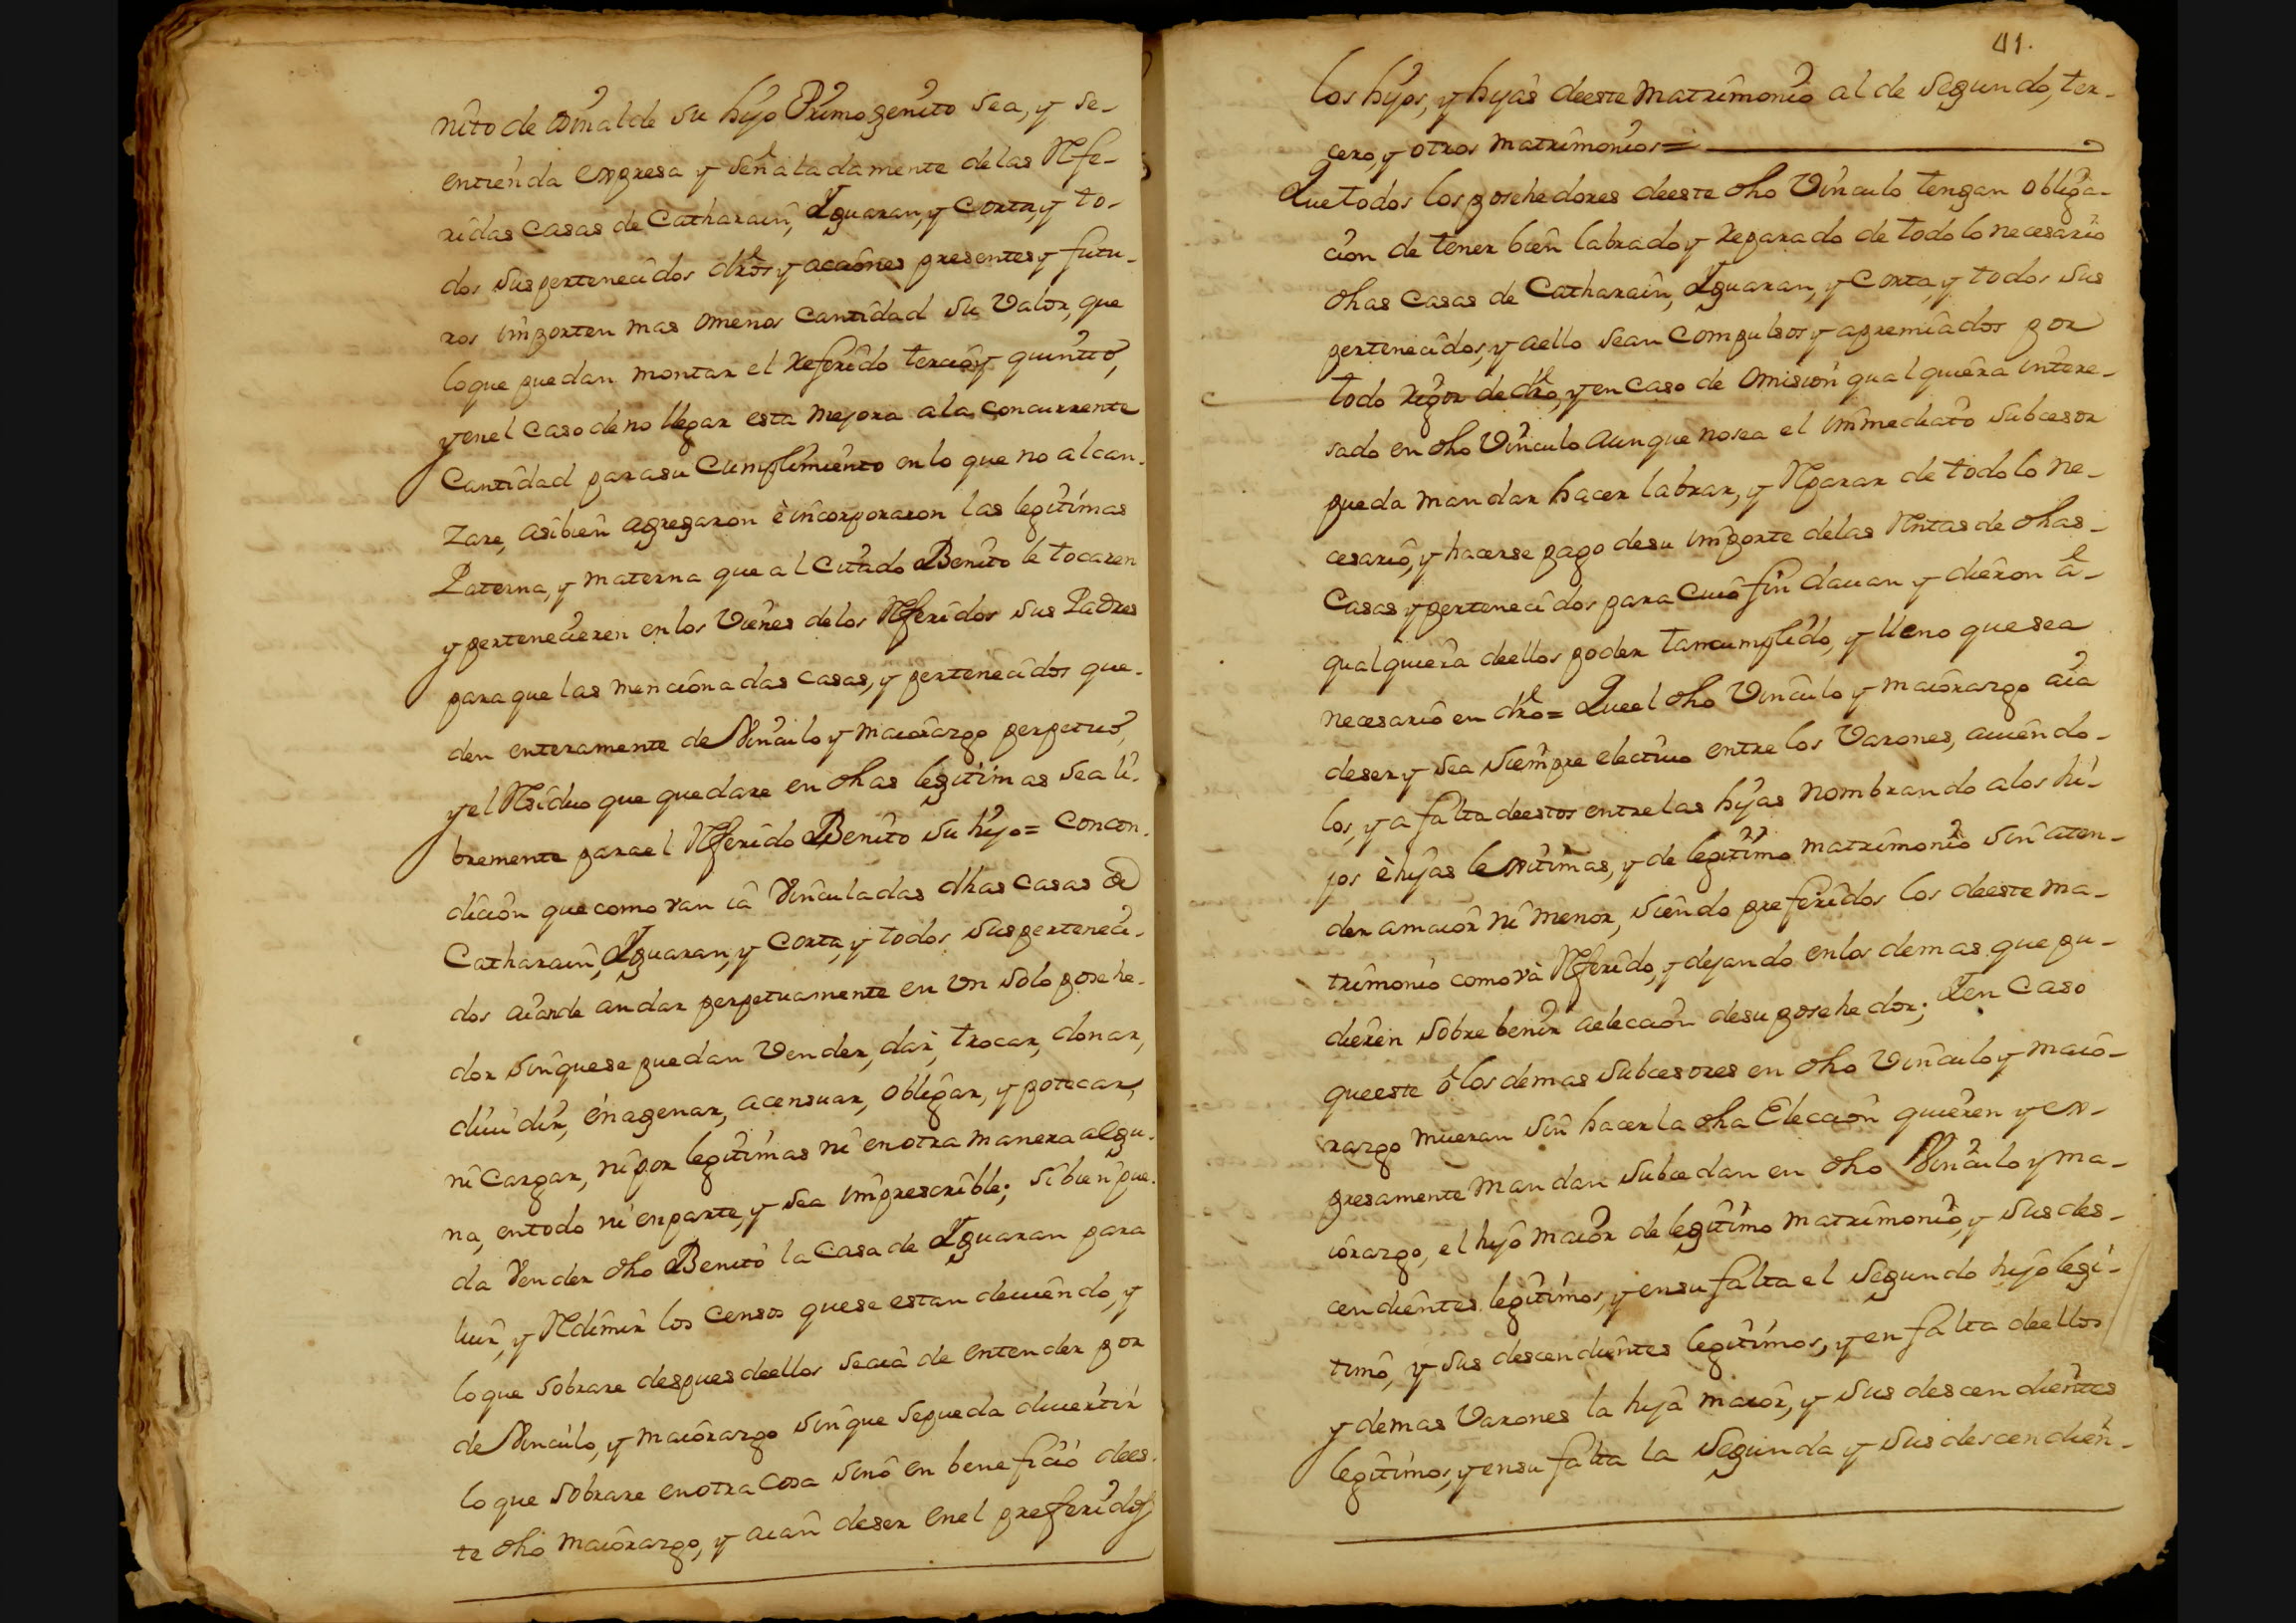 nito de Vinalde su hijo Primogenito sea, y se-
entienda expresa y señaladamente delas Refe-
ridas Casas de Catharain, Yguaran, y Corta, y to-
dos sus pertenecidos dros y acciones presentes y futu-
ros importen mas omenos Cantidad su Valor, que
loque puedan montar el referido tercio y quinto,
yenel Caso de no llegar esta mejora ala concurrente
Cantidad para su Cumplimiento en lo que no alcan-
zare, asibien agregaron è incorporaron las legitimas
Paterna, y materna que al Citado Benito le tocaren
y pertenecieren en los Vienes delos Referidos sus Padres
para que las mencionadas casas, y pertenecidos que-
den enteramente de Vinculo y maiorazgo perpetuo,
yel Residuo que quedare en dhas legitimas sea li-
bremente para el Referido Benito su hijo = Concon-
dicion que como van ia Vinculadas dhas casas de
Catharain, Yguaran, y Corta, y todos sus perteneci-
dos aiande andar perpetuamente en Vn solo posehe-
dor sin que se puedan Vender, dar, trocar, donar,
diuidir, enagenar, acensuar, obligar, ypotecar,
ni Cargar, ni por legitimas ni en otra manera algu-
na, entodo ni enparte, y sea imprescrible; si bien pue-
da Vender dho Benito la Casa de Yguaran para
luir, y Redimir los Censos que se estan deuiendo, y
loque sobrare despues deellos seaia de entender por
de Vinculo, y maiorazgo sin que sepueda diuertir
lo que sobrare enotra Cosa sino en beneficio dees-
te dho maiorazgo, y aian deser enel preferidos
41.
los hijos, y hijas deeste Matrimonio al de segundo, ter-
cero, y otros matrimonios =
Que todos los posehedores deeste dho Vinculo tengan obliga-
cion de tener bien labrado y reparado de todo lo necesario
dhas Casas de Catharain, Yguaran, y Corta, y todos sus
pertenecidos, y aello sean Compulsos y apremiados por
todo rigor de dro, y en Caso de Omision qualquiera intere-
sado en dho Vinculo aunque nosea el immediato subcesor
pueda mandar hacer labrar, y Reparar de todo lo ne-
cesario, y hacerse pago desu importe delas Rentas de dhas-
Casas y pertenecidos para Cuio fin dauan y dieron â-
qualquiera deellos poder tan cumplido, y lleno que sea
necesario en dro = Queel dho Vinculo y maiorazgo aia
deser y sea siempre electiuo entre los Varones, auiendo-
los, y a falta deestos entre las hijas nombrando alos hi-
jos è hijas lexitimas, y de legitimo matrimonio sin aten-
der amaior ni menor, siendo preferidos los deeste ma-
trimonio como và Referido, y dejando enlos demas que pu-
dieren sobrebenir aeleccion desu posehedor; Yen Caso
queeste ô los demas subcesores en dho Vinculo y maio-
razgo mueran sin hacer la dha Eleccion quieren y ex-
presamente mandan subcedan en dho Vinculo y ma-
iorazgo, el hijo maior de legitimo matrimonio, y sus des-
cendientes legitimos, y ensu falta el segundo hijo legi-
timo, y sus descendientes legitimos, y en falta deellos
y demas Varones la hija maior, y sus descendientes
legitimos, y ensu falta la segunda y sus descendien-